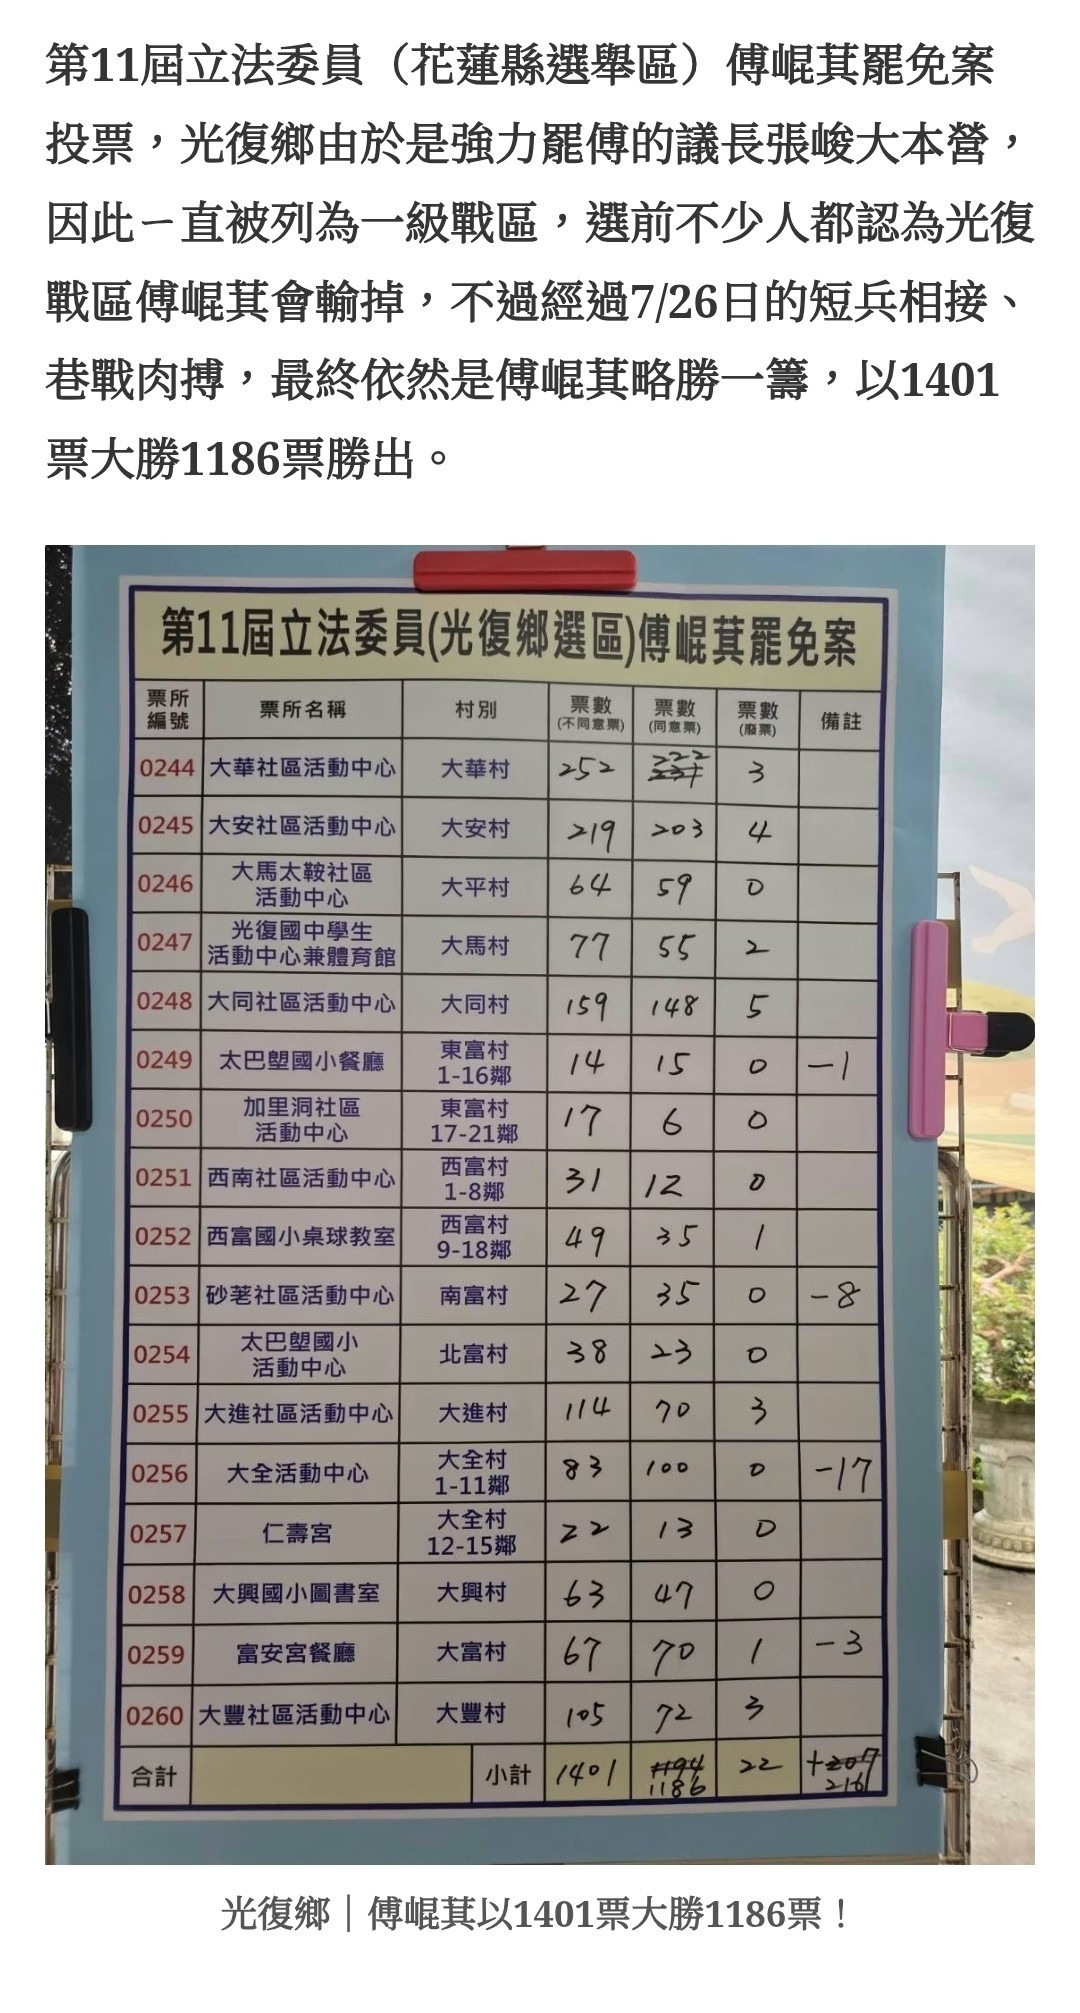 第11屆立法委員（花蓮縣選舉區）傅崐萁罷免案
投票，光復鄉由於是強力罷傅的議長張峻大本營，
因此ㄧ直被列為一級戰區，選前不少人都認為光復
戰區傅崐萁會輸掉，不過經過7/26日的短兵相接、
巷戰肉搏，最終依然是傅崐萁略勝一籌，以1401
票大勝1186票勝出。
第11屆立法委員(光復鄉選區)傅崐萁罷免案
票所編號 票所名稱 村別 票數(不同意票) 票數(同意票) 票數(廢票) 備註
0244 大華社區活動中心 大華村 252 222 3
0245 大安社區活動中心 大安村 219 203 4
0246 大馬太鞍社區活動中心 大平村 64 59 0
0247 光復國中學生活動中心兼體育館 大馬村 77 55 2
0248 大同社區活動中心 大同村 159 148 5
0249 太巴塱國小餐廳 東富村1-16鄰 14 15 0 -1
0250 加里洞社區活動中心 東富村17-21鄰 17 6 0
0251 西南社區活動中心 西富村1-8鄰 31 12 0
0252 西富國小桌球教室 西富村9-18鄰 49 35 1
0253 砂荖社區活動中心 南富村 27 35 0 -8
0254 太巴塱國小活動中心 北富村 38 23 0
0255 大進社區活動中心 大進村 114 70 3
0256 大全活動中心 大全村1-11鄰 83 100 0 -17
0257 仁壽宮 大全村12-15鄰 22 13 0
0258 大興國小圖書室 大興村 63 47 0
0259 富安宮餐廳 大富村 67 70 1 -3
0260 大豐社區活動中心 大豐村 105 72 3
合計 小計 1401 1194 1186 22 +207
光復鄉｜傅崐萁以1401票大勝1186票！